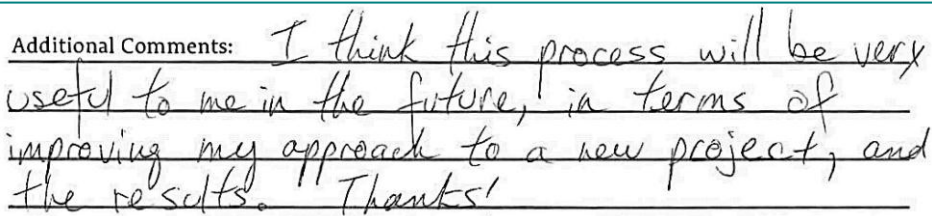 Additional Comments: I think this process will be very
useful to me in the future, in terms of
improving my approach to a new project, and
the results. Thanks!